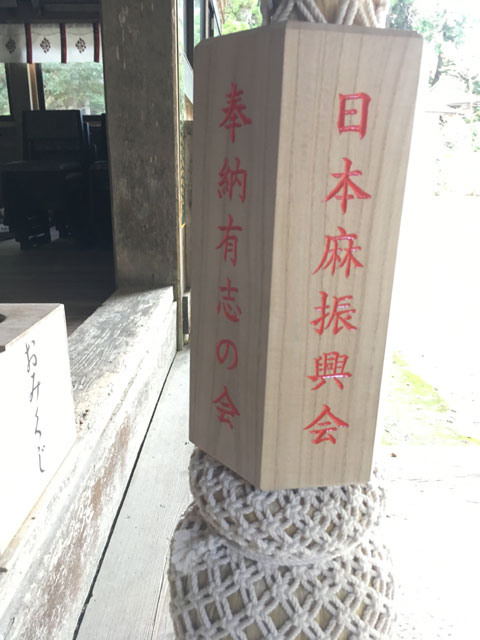 日本麻振興会
奉納有志の会
おみくじ